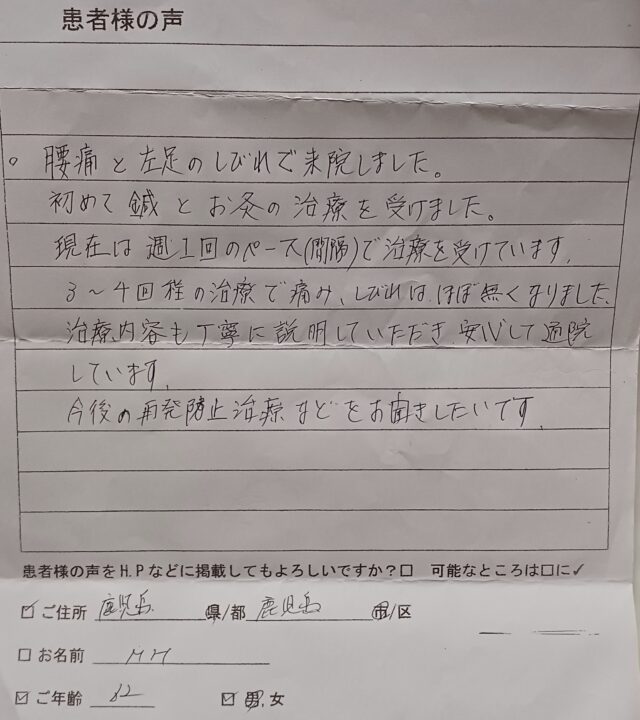 患者様の声
。腰痛と左足のしびれで来院しました。
初めて鍼とお灸の治療を受けました。
現在は週1回のペース(間隔)で治療を受けています。
3〜4回程の治療で痛み、しびれは、ほぼ無くなりました。
治療内容も丁寧に説明していただき、安心して通院
しています。
今後の再発防止治療などをお聞きしたいです。
患者様の声をH.Pなどに掲載してもよろしいですか?☐ 可能なところは☐に✓
☑ご住所 鹿児島 県/都 鹿児島 市/区
☐お名前
☑ご年齢
☑男.女